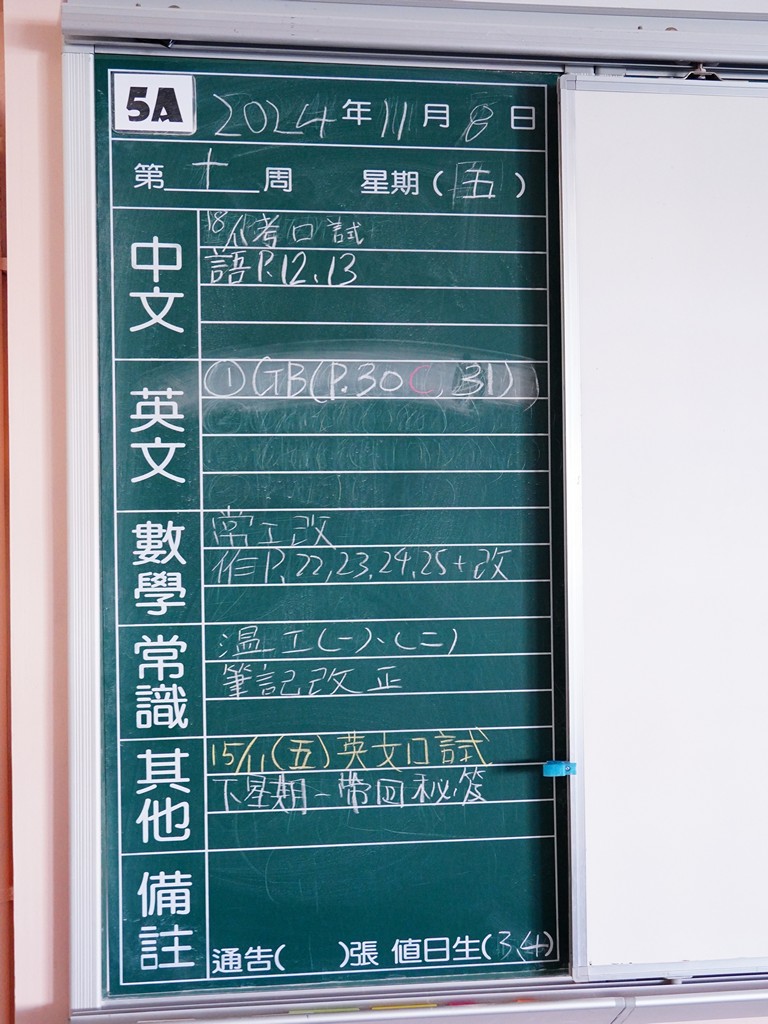 5A 2024年11月8日
第十周 星期(五)
中文
18/11考口試
語P.12、13
英文
①GB(P.30C, 31)
數學
常工改
作P.22,23,24,25+改
常識
溫工(一)、(二)
筆記改正
其他
15/11(五)英文口試
下星期一帶回秘笈
備註
通告( )張 值日生(3,4)